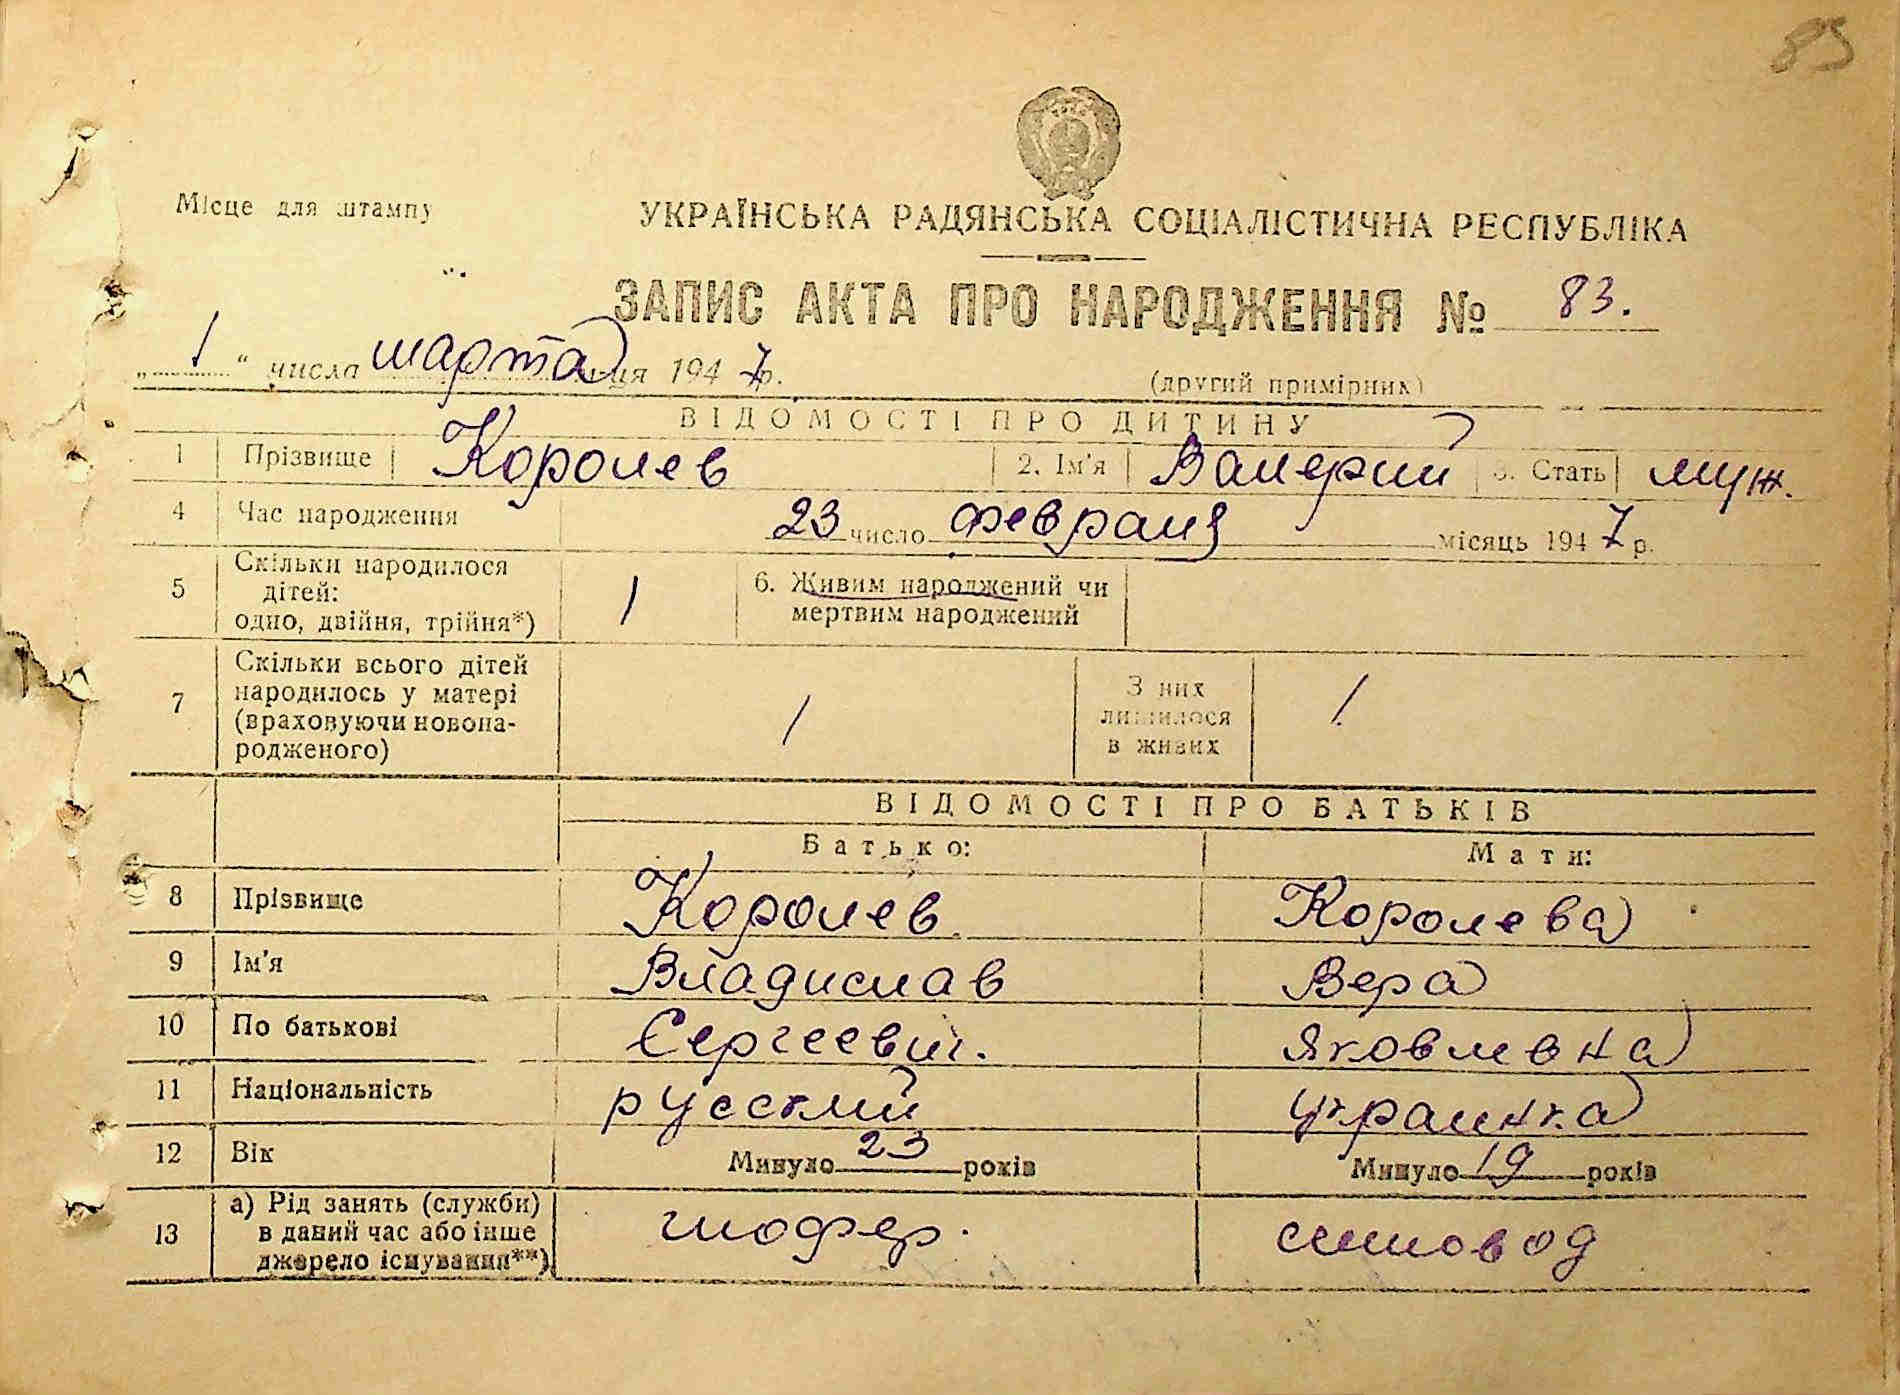 85
Місце для штампу
УКРАЇНСЬКА РАДЯНСЬКА СОЦІАЛІСТИЧНА РЕСПУБЛІКА
ЗАПИС АКТА ПРО НАРОДЖЕННЯ № 83.
„ 1 “ числа марта ця 1947 р.
(другий примірник)
ВІДОМОСТІ ПРО ДИТИНУ
1 Прізвище Королев 2. Ім'я Валерий 3. Стать муж.
4 Час народження 23 число февраля місяць 1947 р.
5 Скільки народилося
дітей:
одно, двійня, трійня*) 1
6. Живим народжений чи
мертвим народжений
7 Скільки всього дітей
народилось у матері
(враховуючи новона-
родженого) 1
З них
лишилося
в живих 1
ВІДОМОСТІ ПРО БАТЬКІВ
Батько: Мати:
8 Прізвище Королев Королева
9 Ім'я Владислав Вера
10 По батькові Сергеевич. Яковлевна
11 Національність русский украинка
12 Вік Минуло 23 років Минуло 19 років
13 а) Рід занять (служби)
в даний час або інше
джерело існування**) шофер.